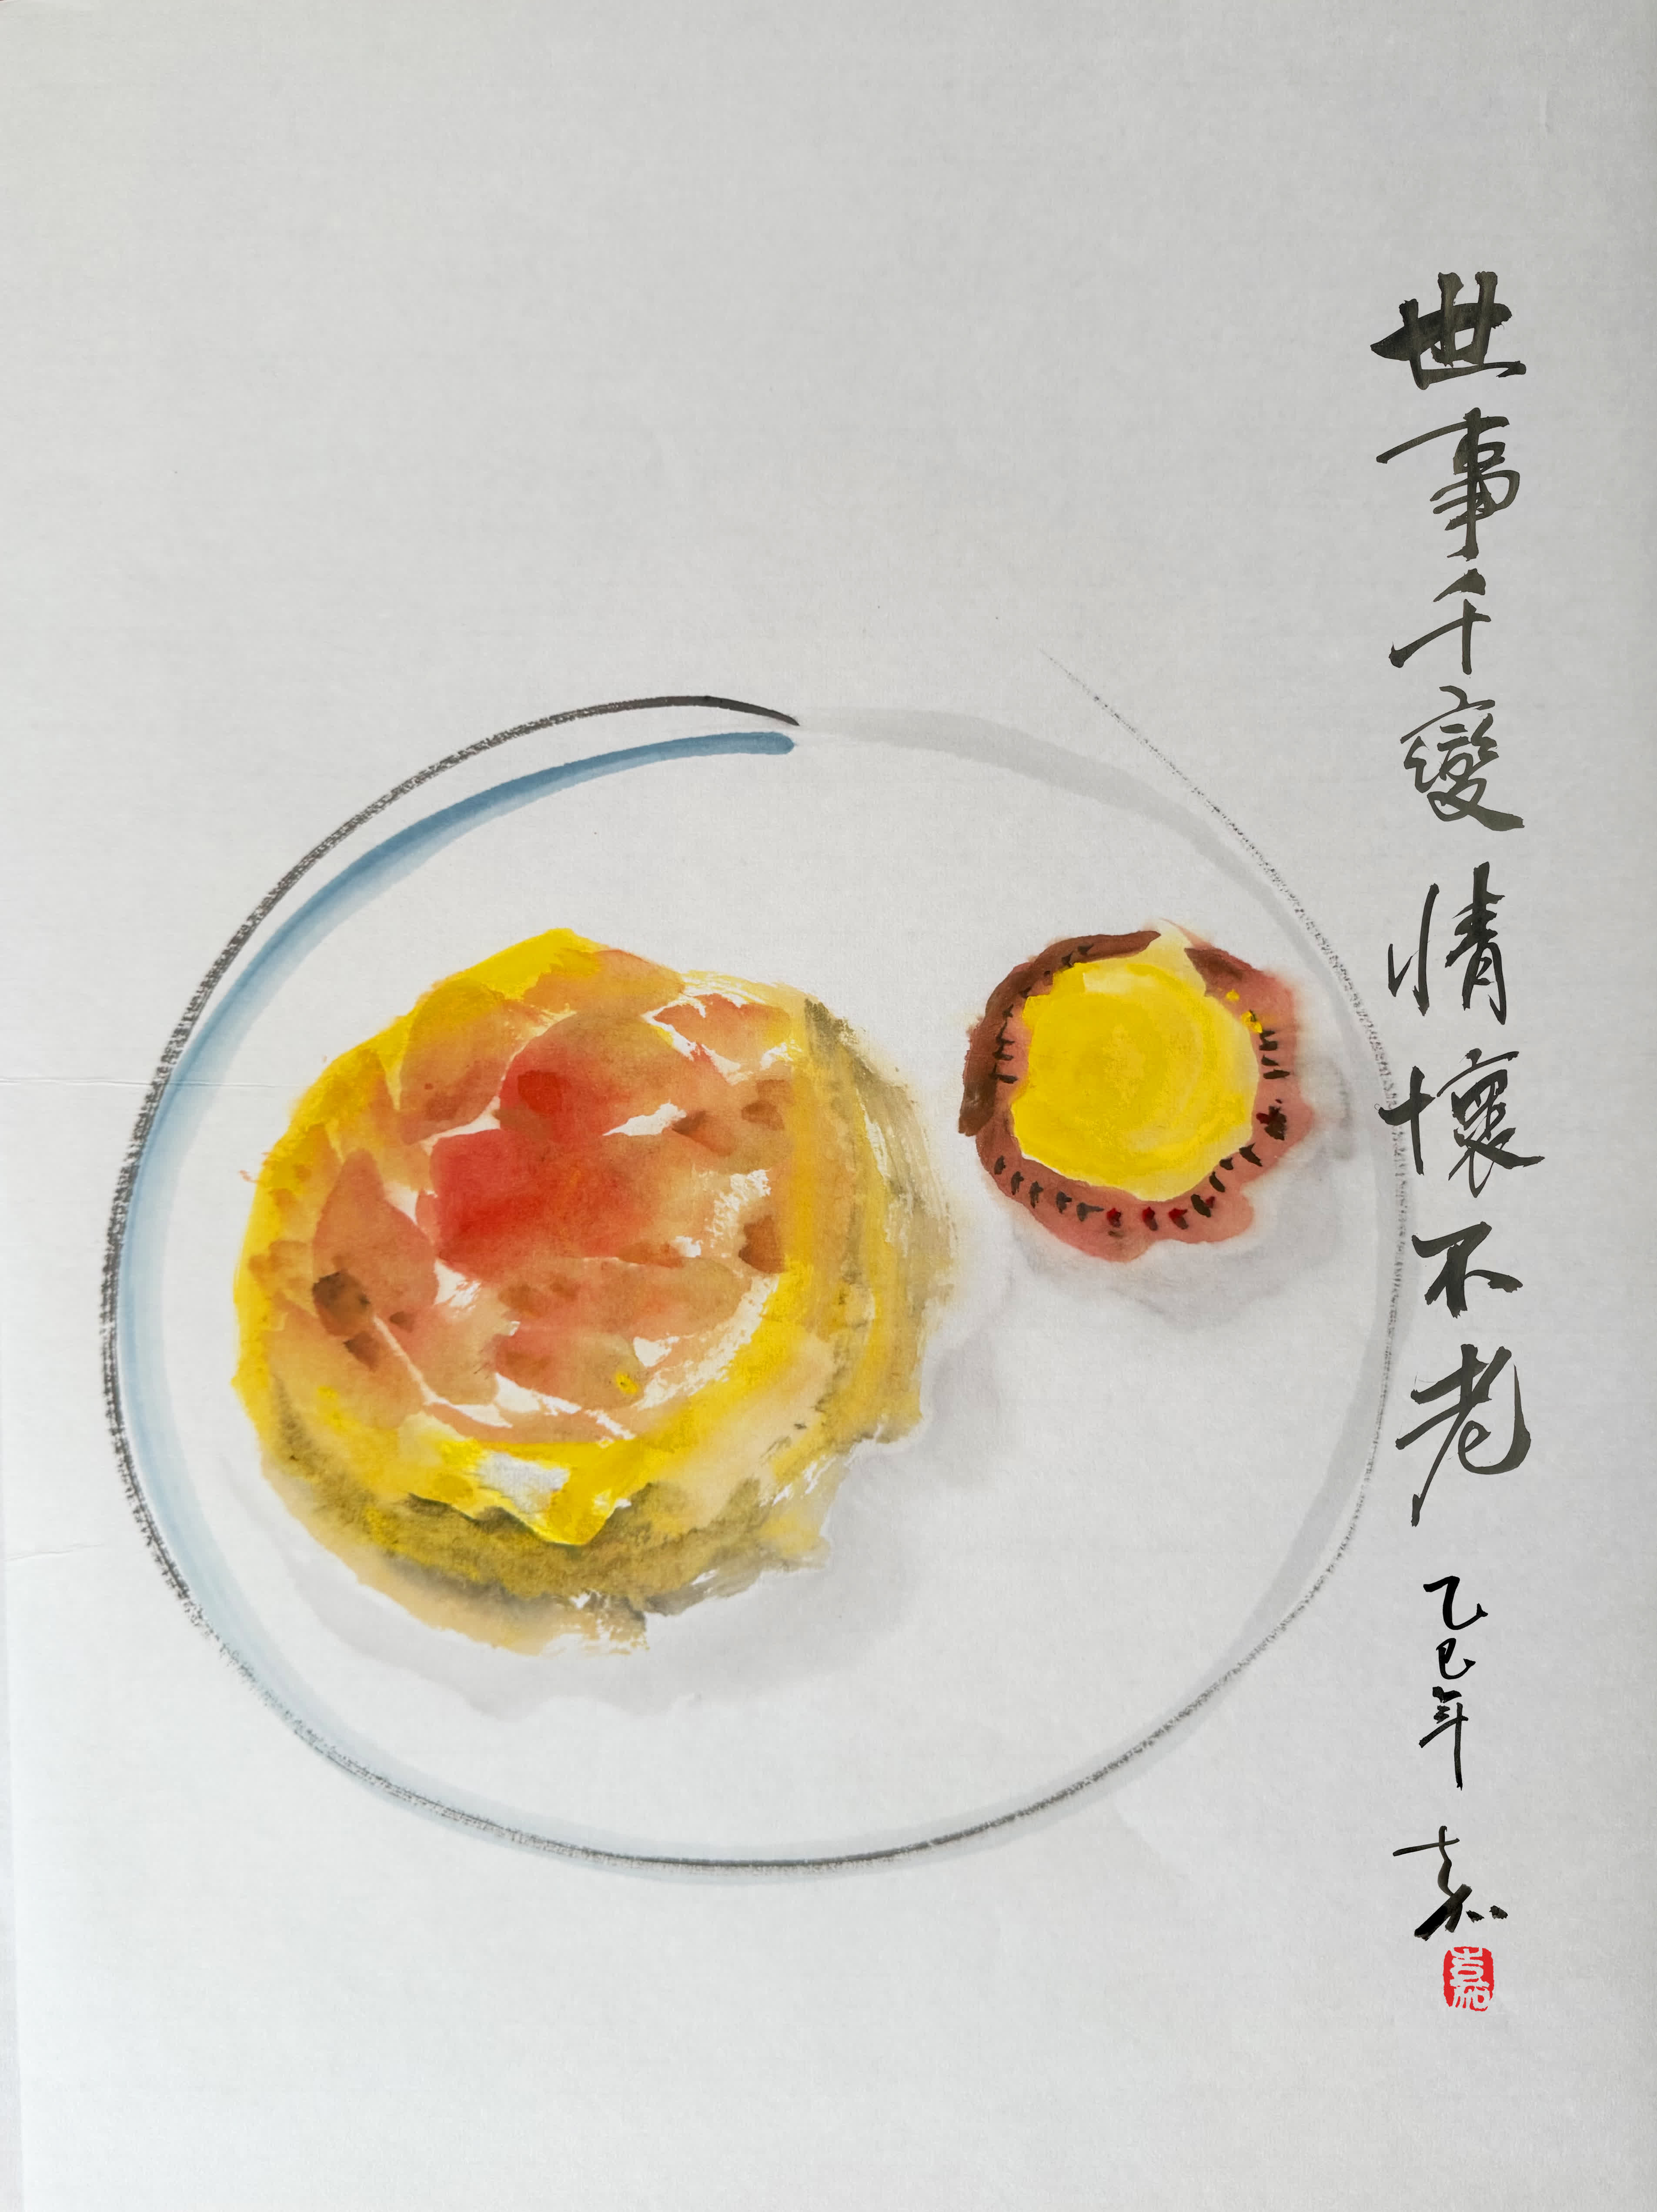 世事千變情懷不老
乙巳年 嘉
嘉